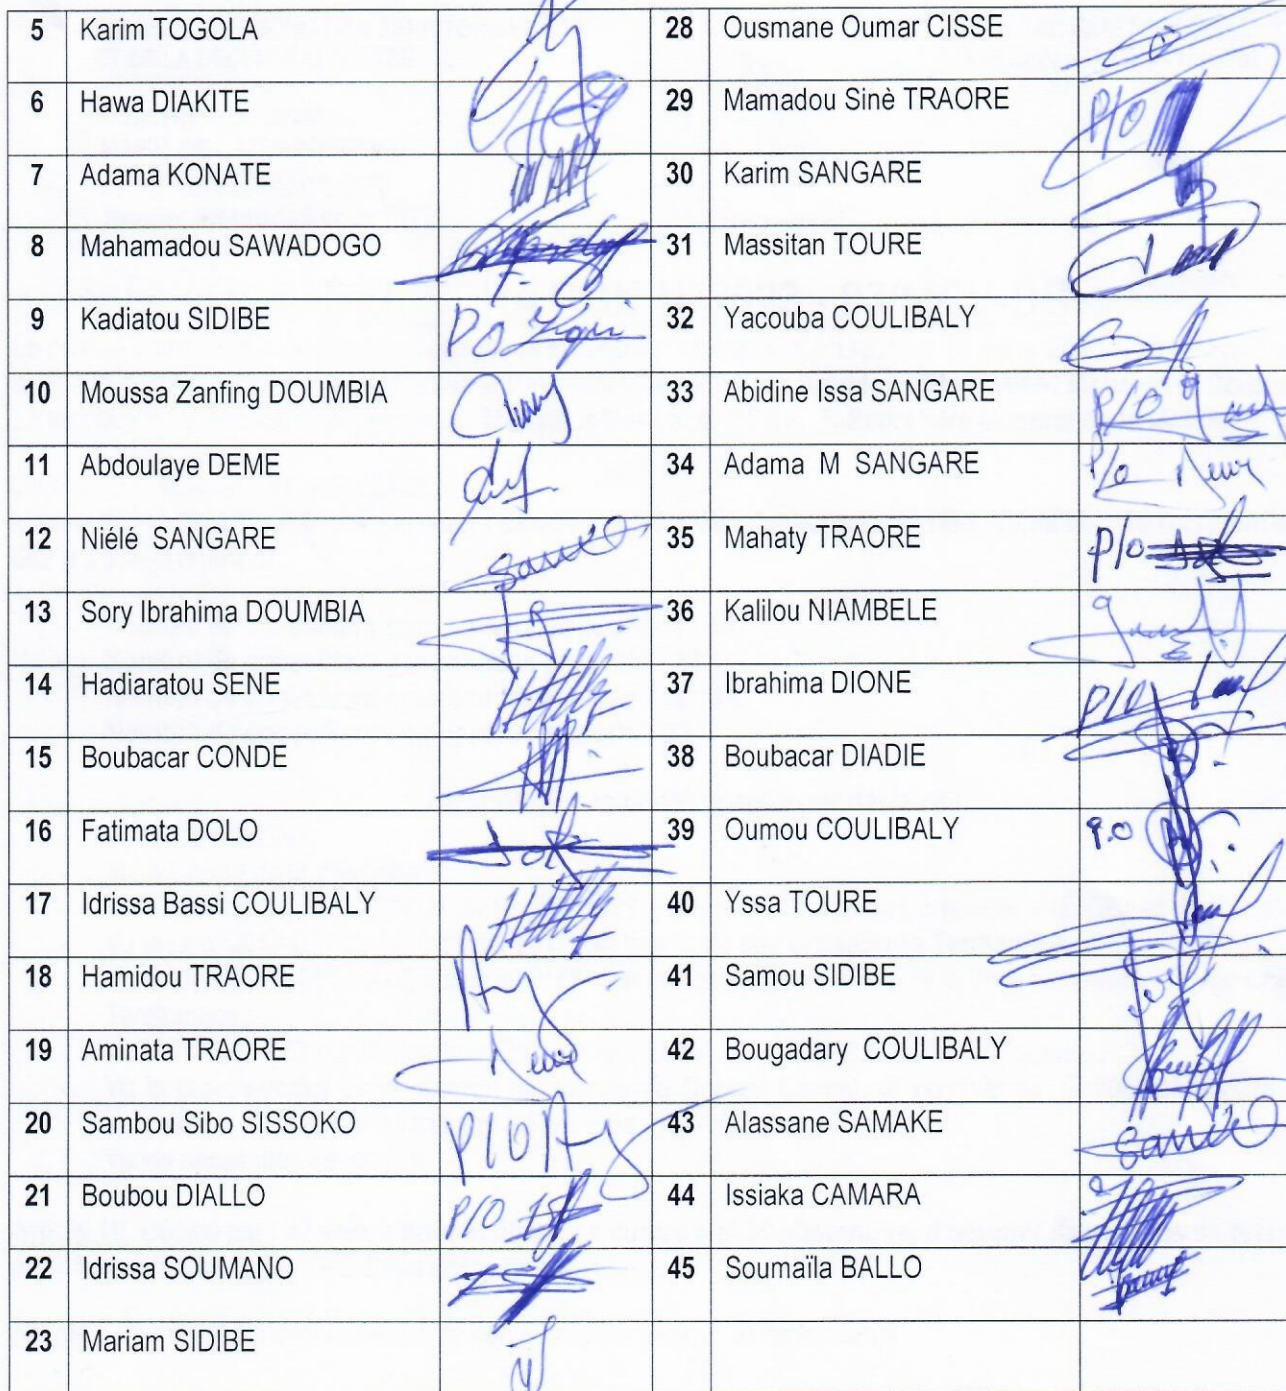 5 Karim TOGOLA 28 Ousmane Oumar CISSE
6 Hawa DIAKITE 29 Mamadou Sinè TRAORE P/O
7 Adama KONATE 30 Karim SANGARE
8 Mahamadou SAWADOGO 31 Massitan TOURE
9 Kadiatou SIDIBE PO 32 Yacouba COULIBALY
10 Moussa Zanfing DOUMBIA 33 Abidine Issa SANGARE P/O
11 Abdoulaye DEME 34 Adama M SANGARE P/o
12 Niélé SANGARE 35 Mahaty TRAORE P/O
13 Sory Ibrahima DOUMBIA 36 Kalilou NIAMBELE
14 Hadiaratou SENE 37 Ibrahima DIONE P/O
15 Boubacar CONDE 38 Boubacar DIADIE
16 Fatimata DOLO 39 Oumou COULIBALY P.O
17 Idrissa Bassi COULIBALY 40 Yssa TOURE
18 Hamidou TRAORE 41 Samou SIDIBE
19 Aminata TRAORE 42 Bougadary COULIBALY
20 Sambou Sibo SISSOKO P/O 43 Alassane SAMAKE
21 Boubou DIALLO P/O 44 Issiaka CAMARA
22 Idrissa SOUMANO 45 Soumaïla BALLO
23 Mariam SIDIBE